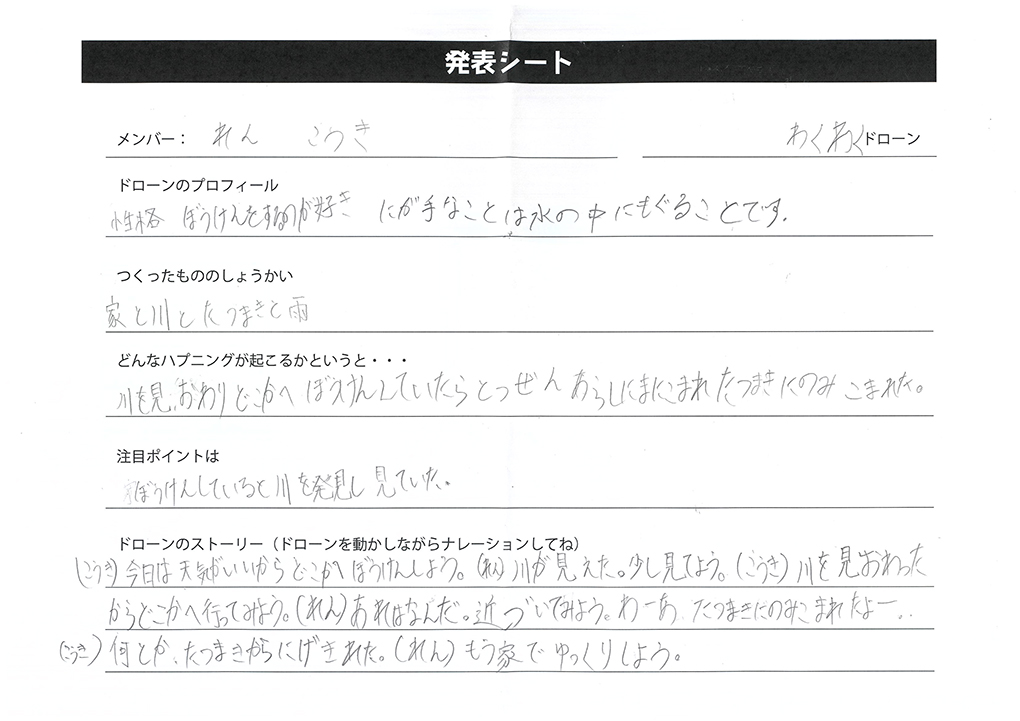 発表シート
メンバー： れん こうき わくわくドローン
ドローンのプロフィール
性格 ぼうけんをするのが好き にが手なことは水の中にもぐることです.
つくったもののしょうかい
家と川とたつまきと雨
どんなハプニングが起こるかというと・・・
川を見おわりどこかへぼうけんしていたらとつぜんあらしにまにこまれたつまきにのみこまれた。
注目ポイントは
ぼうけんしていると川を発見し見ていた。
ドローンのストーリー（ドローンを動かしながらナレーションしてね）
(こうき)今日は天気がいいからどこかへぼうけんしよう。(れん)川が見えた。少し見てよう。(こうき)川を見おわった
からどこかへ行ってみよう。(れん)あれはなんだ。近づいてみよう。わーあ、たつまきにのみこまれたよー..
(こうき)何とか、たつまきからにげきれた。(れん)もう家でゆっくりしよう。